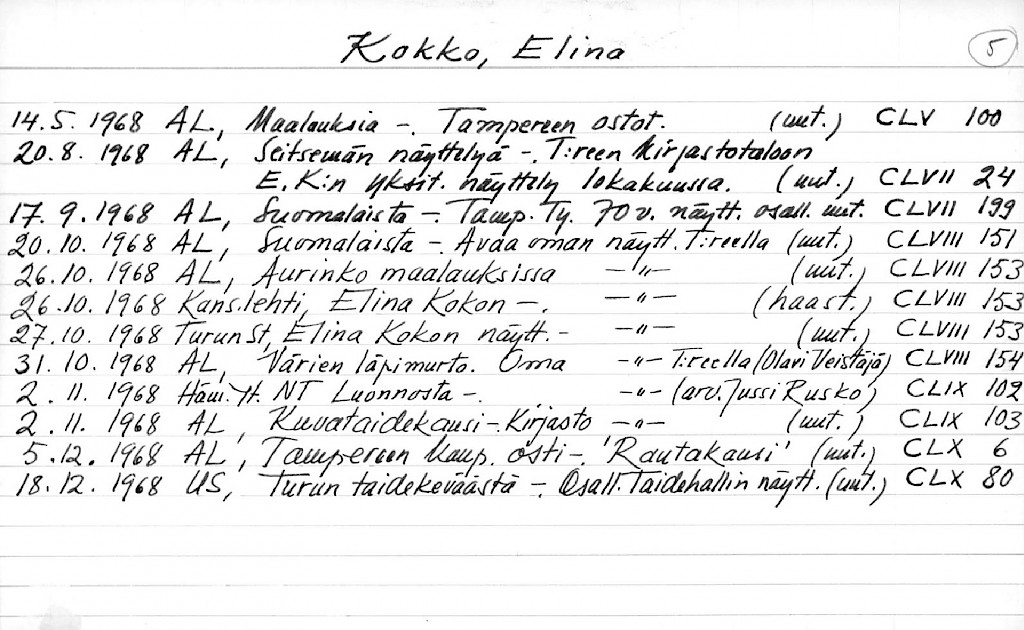 Kokko, Elina 5
14.5. 1968 AL, Maalauksia -. Tampereen ostot. (uut.) CLV 100
20.8. 1968 AL, Seitsemän näyttelyä -. T:reen kirjastotaloon
E.K:n yksit. näyttely lokakuussa. (uut.) CLVII 24
17.9.1968 AL, Suomalaista -. Tamp. Ty. 70 v. näytt. osall. uut. CLVII 199
20.10.1968 AL, Suomalaista -. Avaa oman näytt. T:reella (uut.) CLVIII 151
26.10.1968 AL, Aurinko maalauksissa -"- (uut.) CLVIII 153
26.10.1968 Kans.lehti, Elina Kokon -. -"- (haast.) CLVIII 153
27.10.1968 Turun St, Elina Kokon näytt.- -"- (uut.) CLVIII 153
31.10.1968 AL, Värien läpimurto. Oma -"- T:reella (Olavi Veistäjä) CLVIII 154
2.11.1968 Häm. Yt. NT Luonnosta -. -"- (arv. Jussi Rusko) CLIX 102
2.11.1968 AL, Kuvataidekausi -. Kirjasto -"- (uut.) CLIX 103
5.12.1968 AL, Tampereen kaup. osti -. 'Rautakausi' (uut.) CLX 6
18.12.1968 US, Turun taidekeväästä -. Osall. Taidehallin näytt. (uut.) CLX 80